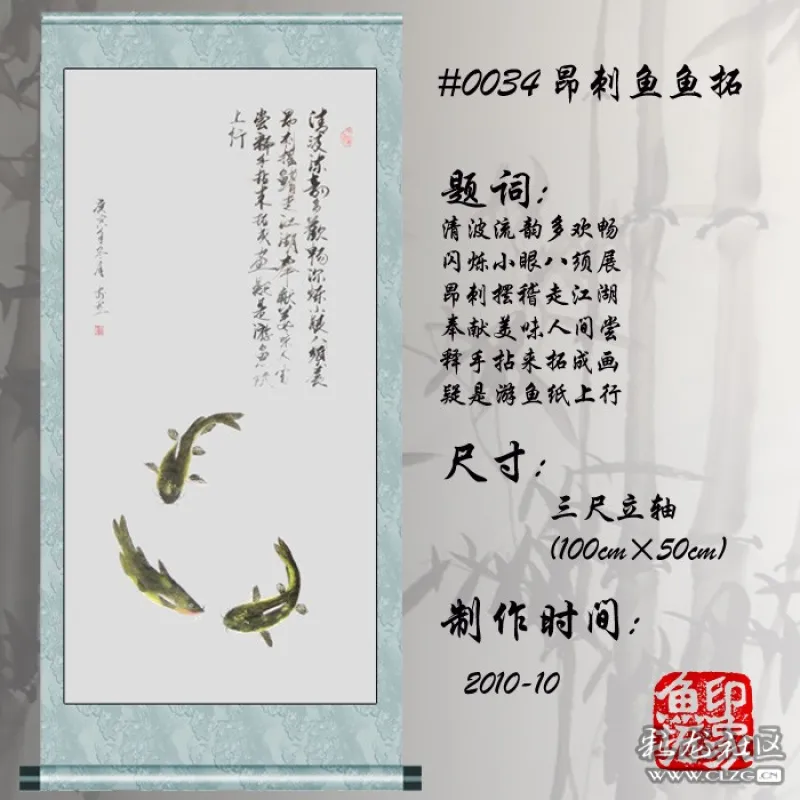 清波流韵多欢畅
昂刺摆稽走江湖奉献美味人间
尝释手拈来拓成画疑是游鱼纸
上行
#0034 昂刺鱼鱼拓
题词：
清波流韵多欢畅
闪烁小眼八须展
昂刺摆稽走江湖
奉献美味人间尝
释手拈来拓成画
疑是游鱼纸上行
尺寸：
三尺立轴
(100cm×50cm)
制作时间：
2010-10
化龙社区
WWW.CLZG.CN